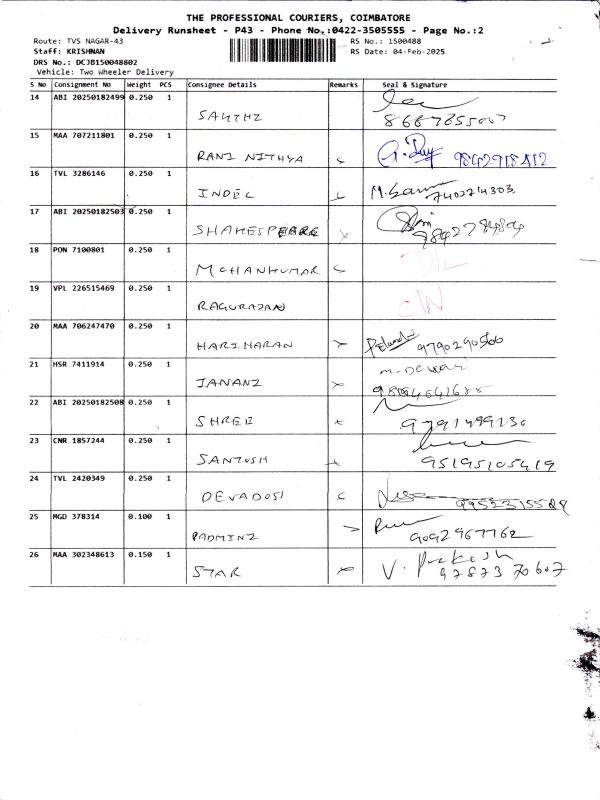 THE PROFESSIONAL COURIERS, COIMBATORE
Delivery Runsheet - P43 - Phone No.:0422-3505555 - Page No.:2
Route: TVS NAGAR-43 RS No.: 1500488
Staff: KRISHNAN RS Date: 04-Feb-2025
DRS No.: DCJB150048802
Vehicle: Two Wheeler Delivery
S No Consignment No Weight PCS Consignee Details Remarks Seal & Signature
14 ABI 20250182499 0.250 1
SAKTHI
15 MAA 707211801 0.250 1
RANI NITHYA 9842918412
16 TVL 3286146 0.250 1
INDEL 740274303
17 ABI 20250182503 0.250 1
SHAKESPEARE
18 PON 7100801 0.250 1
MOHANKUMAR D/L
19 VPL 226515469 0.250 1
RAGURAJAN C/N
20 MAA 706247470 0.250 1
HARIHARAN 9790290566
21 HSR 7411914 0.250 1
JANANI M. DEVAN
22 ABI 20250182508 0.250 1
SHREE 9791499130
23 CNR 1857244 0.250 1
SANTOSH 95195105419
24 TVL 2420349 0.250 1
DEVADOSS
25 MGD 378314 0.100 1
PADMINI 9092967762
26 MAA 302348613 0.150 1
STAR V. Prakash
9787370607